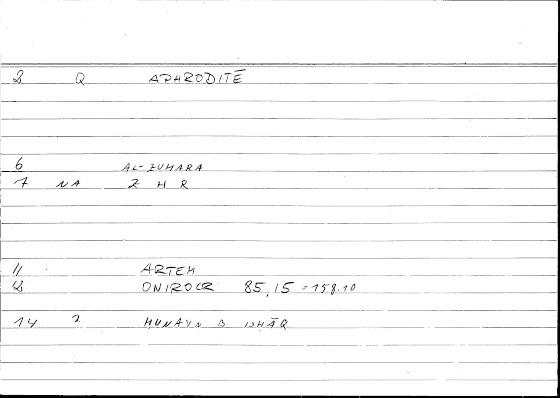 2 Q APHRODITĒ
6 AL-ZUHARA
7 NA Z H R
11 ARTEM
12 ONIROCR 85,15 = 158.10
14 2 ḤUNAYN B. ISḤĀQ